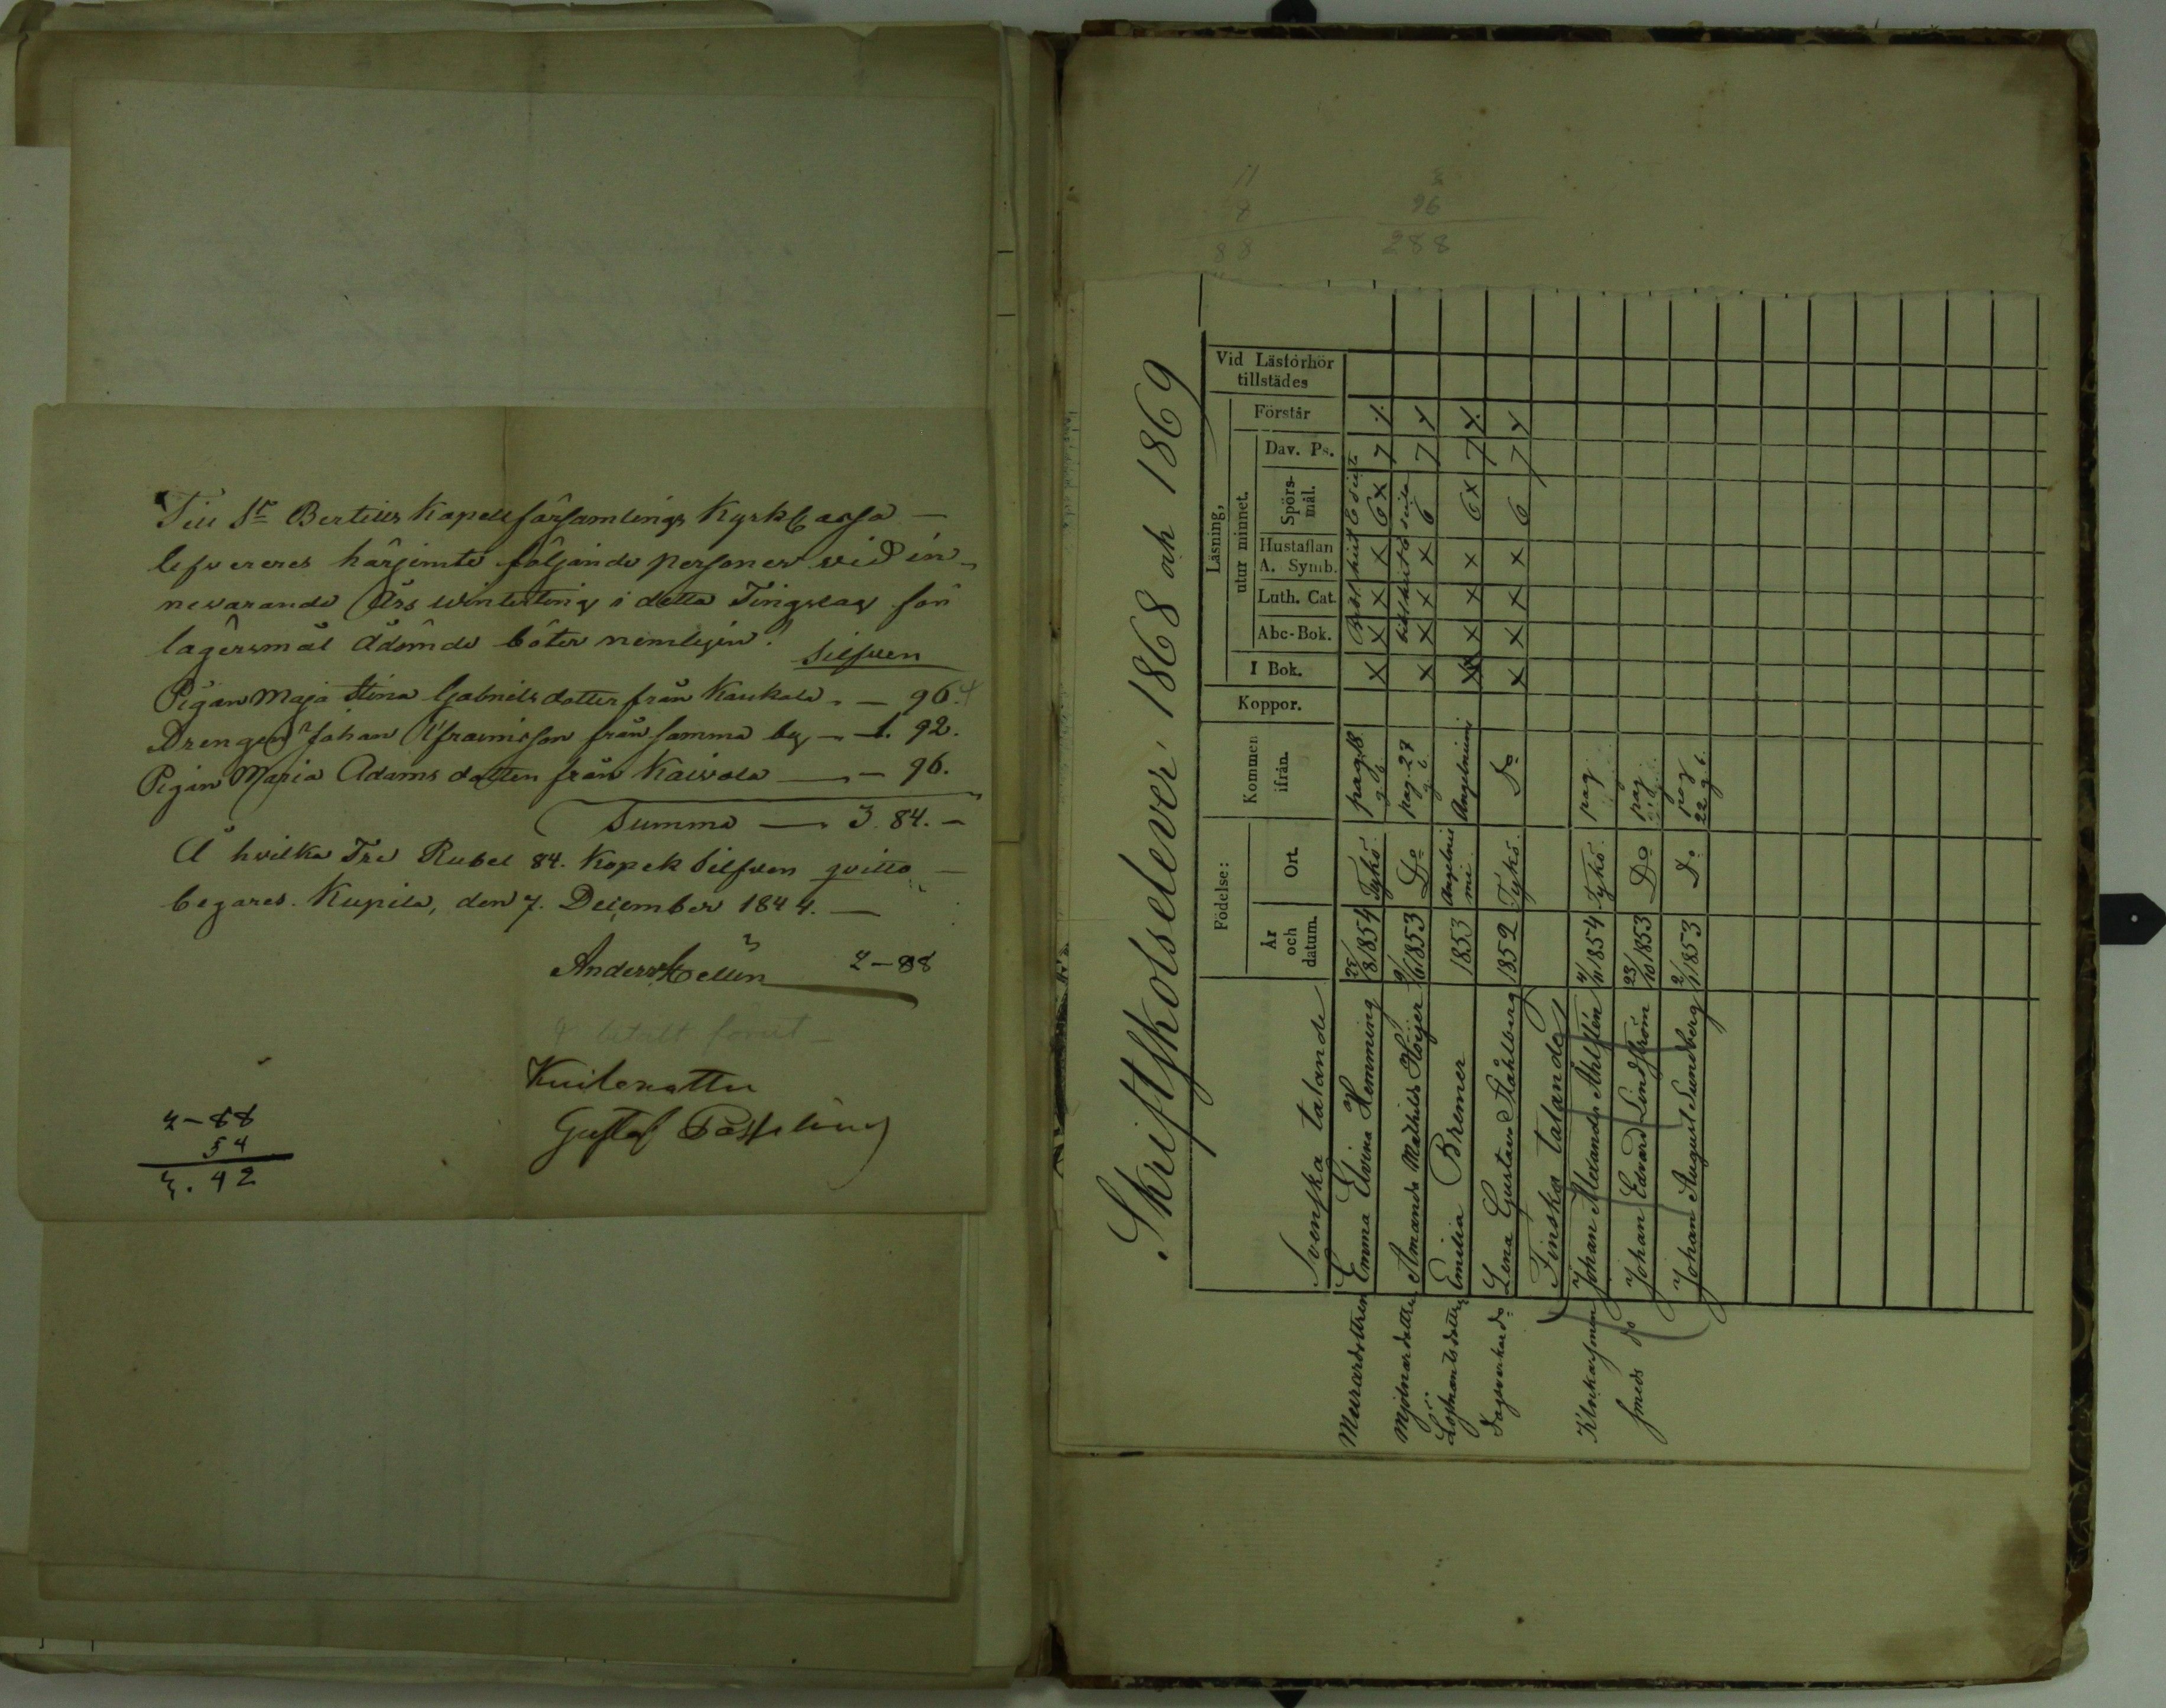 Till St Bertills Kapellförsamlings Kyrk Cassa —
lefvereres härjemte följande personer vid in-
nevarande Års Winterting i detta Tingslag för
lägersmål ådömde böter nemligen!
Silfver
Pigan Maja Stina Gabrielsdotter från Kaukola — 96.
Drengen Johan Efraimsson från samma by — 1. 92.
Pigan Maria Adamsdotter från Kaivola — 96.
Summa — 3. 84. —
Å hvilka Tre Rubel 84. Kopek Silfver qvitto
begäres. Kupila, den 7. December 1844. —
Anders Hellén 2-88
betalt förut
Gustaf
2-88
54
3. 42
11
8
88
96
288
Skriftskolselever 1868 och 1869
Födelse: Läsning, Vid Läsförhör tillstädes
År och datum. Ort. Kommen ifrån. Koppor. I Bok. utur minnet. Förstår
Abc-Bok. Luth. Cat. Hustaflan A. Symb. Spörs-mål. Dav. Ps.
Svenska talande
Emma Elvira Hemming 25/8 1854 Tykö pag 18 x x x x 6 x 7
Mjölnardotter Amanda Mathilda Höijer 9/6 1853 Do pag. 27 x x x x 6 7
Emilia Bremer 1853 Angelnie mi Angelniemi x x x x 6 x 7
Lena Gustava Ståhlberg 1852 Tykö Do x x x x 6 7
Finska talande
Klockarson Johan Alexander Ahlsten 4/11 1854 Tykö pag
Smeds do Johan Edvard Lindström 23/10 1853 Do pag
Johan August Sundberg 2/1 1853 Do pag 22